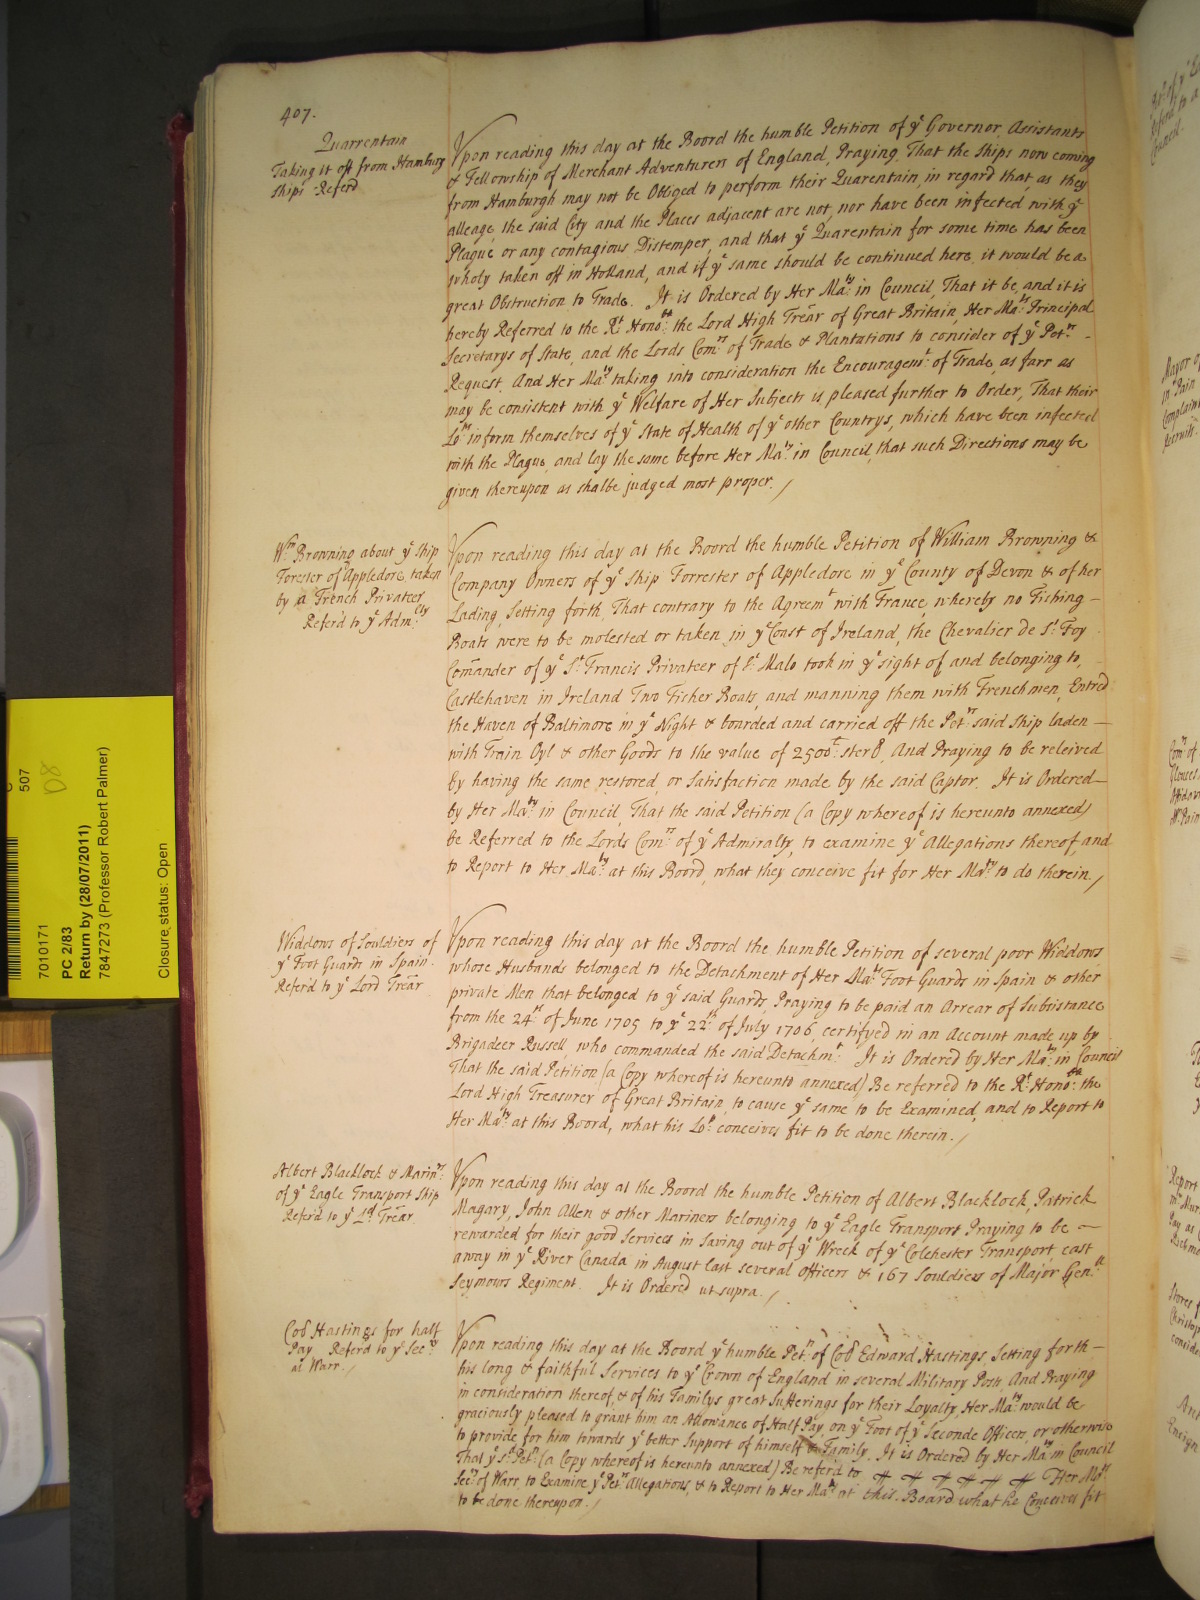 407.
Quarrentain
Taking it off from Hamburg
ships Referd
Vpon reading this day at the Boord the humble Petition of yͤ Governor, Assistants
& Fellowship of Merchant Adventurers of England, Praying, That the Ships now coming
from Hamburgh may not be Obliged to perform their Quarentain, in regard that, as they
alleage, the said City and the Places adjacent are not, nor have been infected with yͤ
Plague or any contagious Distemper, and that yͤ Quarentain for some time has been
wholy taken off in Holland, and if yͤ same should be continued here, it would be a
great Obstruction to Trade. It is Ordered by Her Maᵗʸ in Council, That it be, and it is
hereby Referred to the Rᵗ Honoᵇˡᵉ the Lord High Trēar of Great Britain, Her Maᵗˢ Principal
Secretarys of State, and the Lords Comʳˢ of Trade & Plantations to consider of yͤ Petʳˢ -
Request. And Her Maᵗʸ taking into consideration the Encouragemᵗ of Trade, as farr as
may be consistent with yͤ Welfare of Her Subjects is pleased further to Order, That their
Loᵖˢ inform themselves of yͤ State of Health of yͤ other Countrys, which have been infected
with the Plague, and lay the same before Her Maᵗʸ in Council, that such Directions may be
given thereupon as shalbe judged most proper. /
Wᵐ Browning about yͤ ship
Forester of Appledore, taken
by a French Privateer
Referd to yͤ Admˡᵗʸ
Vpon reading this day at the Boord the humble Petition of William Browning &
Company Owners of yͤ ship Forrester of Appledore in yͤ County of Devon & of her
Lading, Setting forth, That contrary to the Agreemᵗ with France, whereby no Fishing -
Boats were to be molested or taken in yͤ Coast of Ireland, the Chevalier de Sᵗ Foy
Com̄ander of yͤ Sᵗ Francis Privateer of Sᵗ Malo took in yͤ sight of and belonging to, -
Castlehaven in Ireland Two Fisher Boats, and manning them with Frenchmen, Entred
the Haven of Baltimore in yͤ Night & boarded and carried off the Petʳˢ said ship laden —
with Train Oyl & other Goods to the value of 2500ˡ sterl, And Praying to be releived
by having the same restored, or Satisfaction made by the said Captor. It is Ordered —
by Her Maᵗʸ in Council, That the said Petition (a Copy whereof is hereunto annexed)
be Referred to the Lords Comʳˢ of yͤ Admiralty, to examine yͤ Allegations thereof, and
to Report to Her Maᵗʸ at this Boord, what they conceive fit for Her Maᵗʸ to do therein. /
Widdows of Souldiers of
yͤ Foot Guards in Spain
Refer'd to yͤ Lord Trēar
Vpon reading this day at the Boord the humble Petition of several poor Widdows
whose Husbands belonged to the Detachment of Her Maᵗˢ Foot Guards in Spain & other
private Men that belonged to yͤ said Guards, Praying to be paid an Arrear of Subsistance
from the 24ᵗʰ of June 1705 to yͤ 22ᵗʰ of July 1706, certifyed in an Account made up by
Brigadeer Russell, who commanded the said Detachmᵗ It is Ordered by Her Maᵗʸ in Council
That the said Petition (a Copy whereof is hereunto annexed) Be referred to the Rᵗ Honoᵇˡᵉ the
Lord High Treasurer of Great Britain, to cause yͤ same to be Examined, and to Report to
Her Maᵗʸ at this Boord, what his Loᵖ conceives fit to be done therein. /
Albert Blacklock & Marinʳˢ
of yͤ Eagle Transport ship
Refer'd to yͤ Lᵈ Trēar
Vpon reading this day at the Boord the humble Petition of Albert Blacklock, Patrick
Magary, John Allen & other Mariners belonging to yͤ Eagle Transport Praying to be —
rewarded for their good Services in Saving out of yͤ Wreck of yͤ Colchester Transport, cast
away in yͤ River Canada in August last several officers & 167 Souldiers of Major Genˡˡ
Seymours Regiment. It is Ordered ut supra. /
Coll Hastings for half
Pay Referd to yͤ Secʳʸ
at Warr. /
Vpon reading this day at the Boord yͤ humble Petⁿ of Coll Edward Hastings, Setting forth —
his long & faithful Services to yͤ Crown of England in several Military Posts, And Praying
in consideration thereof, & of his Familys great Sufferings for their Loyalty, Her Maᵗʸ would be
graciously pleased to grant him an Allowance of Half Pay, on yͤ Foot of yͤ Seconde Officer, or otherwise
to provide for him towards yͤ better Support of himself & Family. It is Ordered by Her Maᵗʸ in Council
That yͤ sᵈ Petⁿ (a Copy whereof is hereunto annexed) Be referd to Her Maᵗˢ
Secʳʸ of Warr, to Examine yͤ Petʳˢ Allegations, & to Report to Her Maᵗʸ at this Board what he Conceives fit
to be done thereupon. /
507
D8
7010171
PC 2/83
Return by (28/07/2011)
7847273 (Professor Robert Palmer)
Closure status: Open
Mayor of
in Pain
Complaint
Recruits
Report
Pay at
Stores f
Christop
conside
Ensign